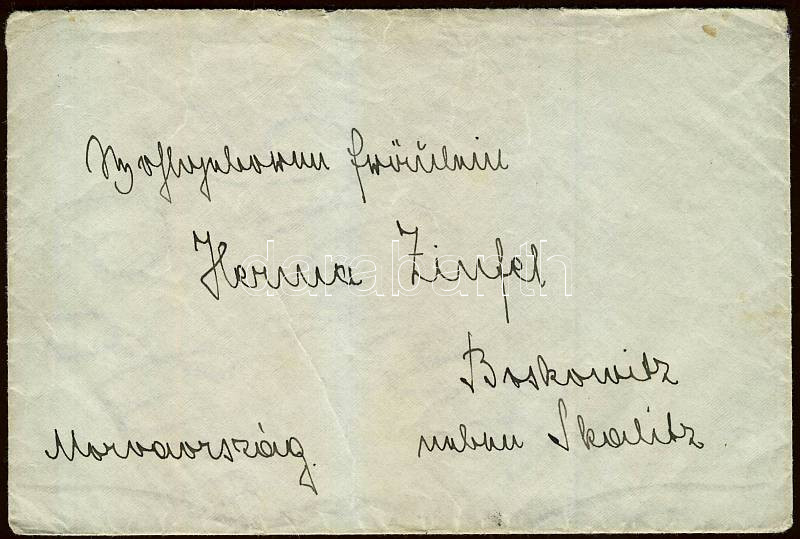 Wohlgeborenen Fräulein
Herma Zinfel
Boskowitz
neben Skalitz
Morvaország.
darabanth